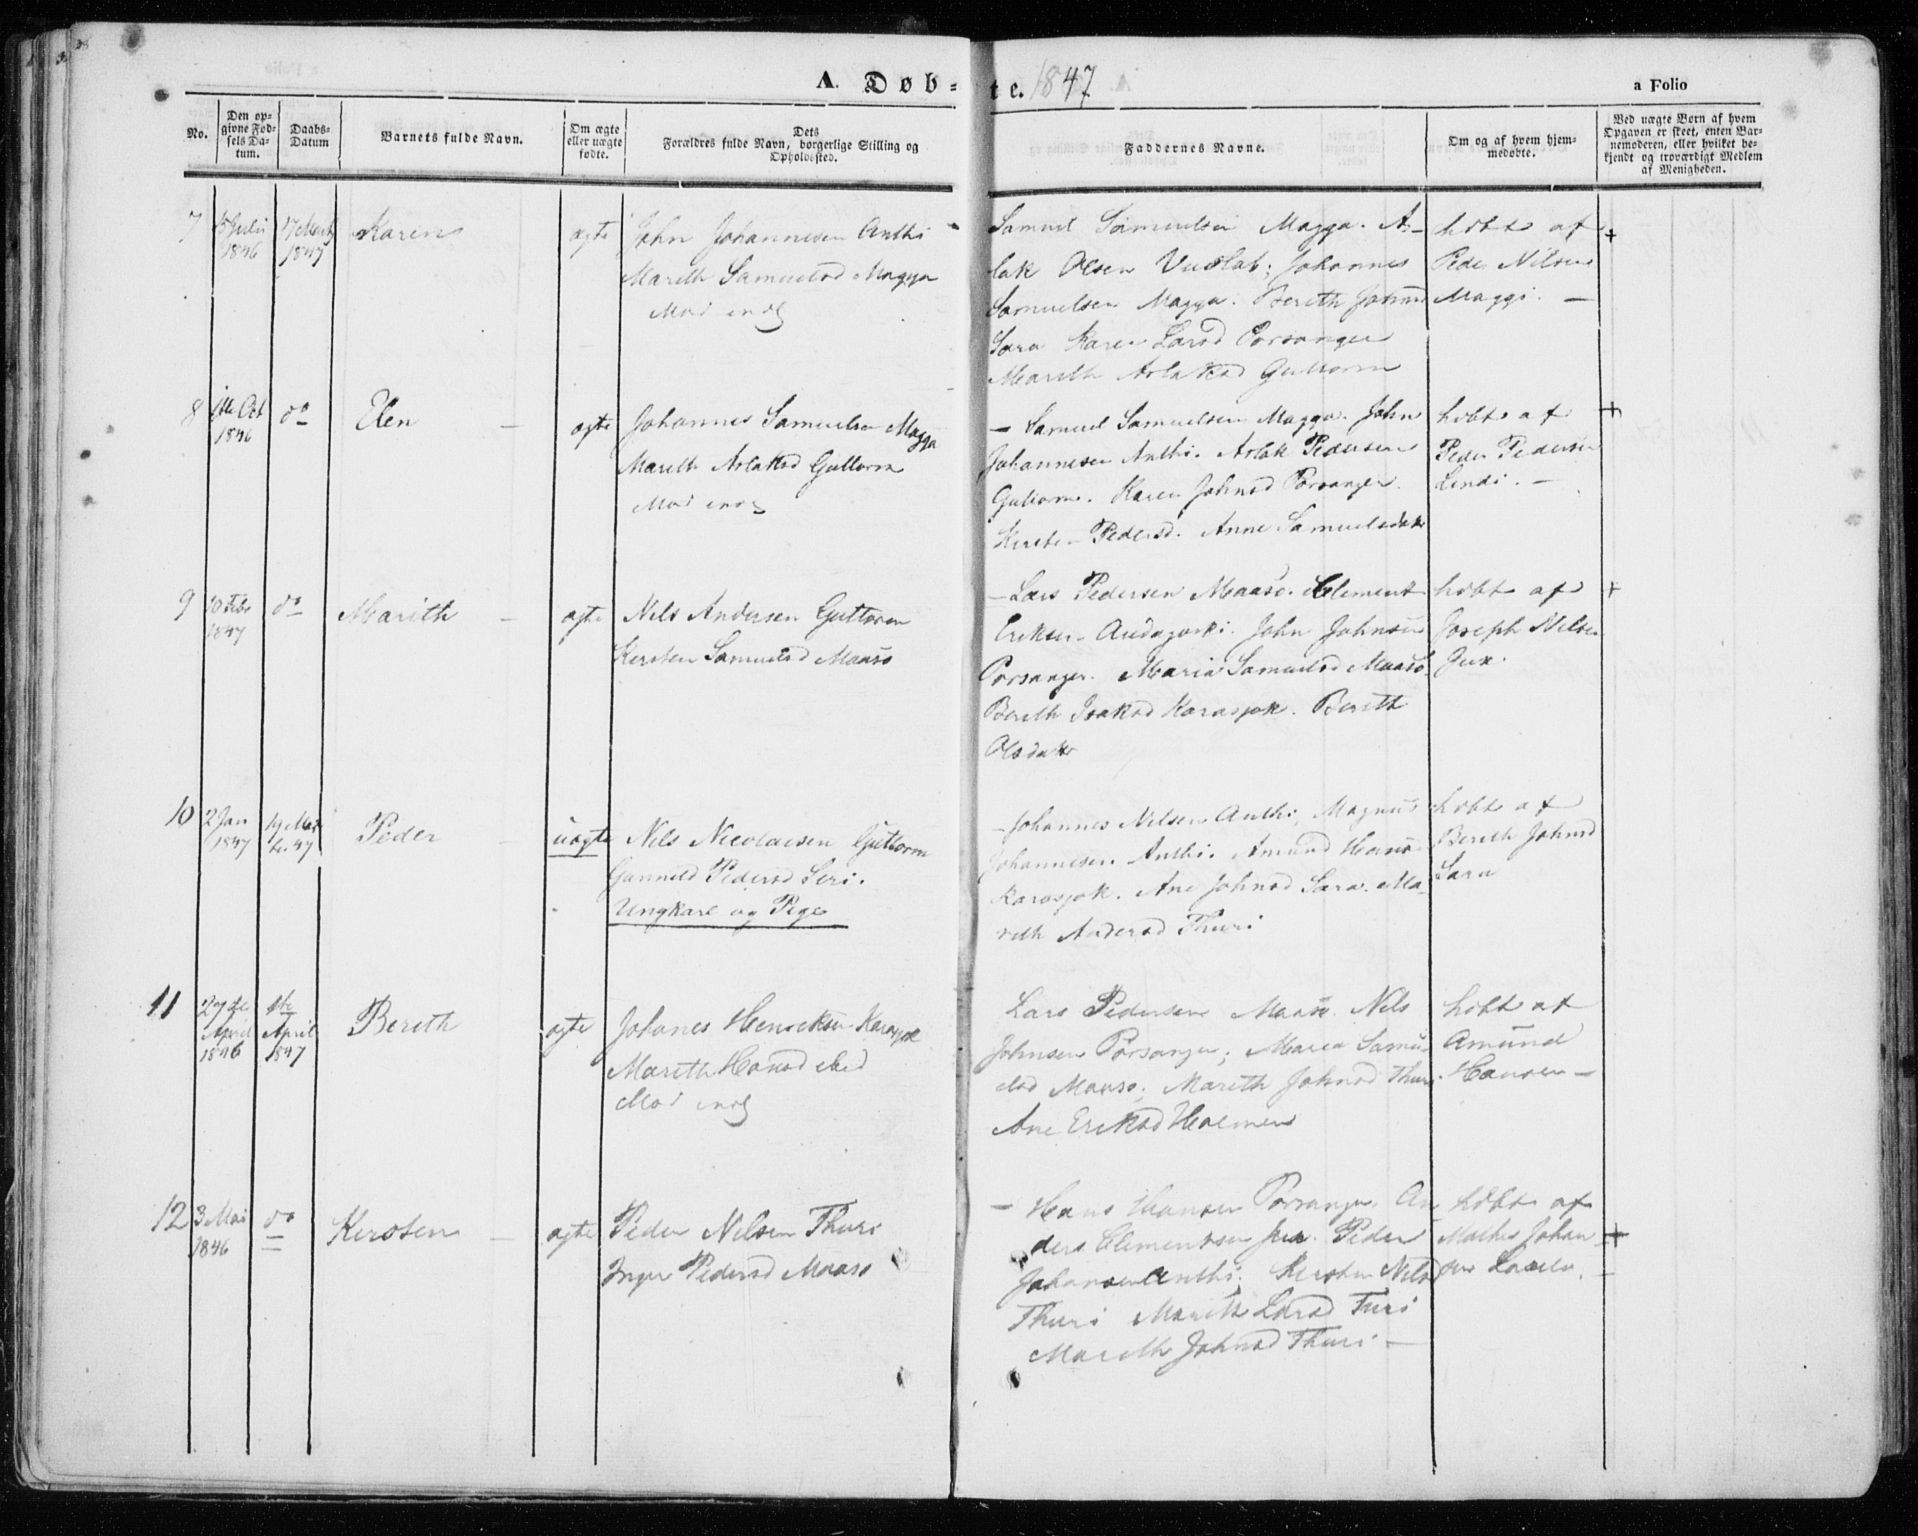 A. Døb=
te. 1847
a Folio
No.
Den op=
givne Fød=
sels Da=
tum.
Daabs=
Datum
Barnets fulde Navn.
Om ægte
eller uægte
fødte.
Dets
Forældres fulde Navn, borgerlige Stilling og
Opholdssted.
Faddernes Navne.
Om og af hvem hjem=
medøbte.
Ved uægte Børn af hvem
Opgaven er skeet, enten Bar=
nemoderen, eller hvilket be=
kjendt og troværdigt Medlem
af Menigheden.
7
Julii
1846
17 Marts
1847
Karen
ægte
John Johannesen Anthi
Mareth Samuelsd Magga
Samuel Samuelsen Magga. As-
lak Olsen Vuolab; Johannes
Samuelsen Magga. Bereth Johnsd
Sara Karen Larsd Porsanger
Mareth Aslaksd Guttorm
hdbt af
Peder Nilsen
Maggi. —
+
8
Oct
1846
do
Elen
ægte
Johannes Samuelsen Magga
Mareth Aslaksd Guttorm
— Samuel Samuelsen Magga. John
Johannesen Anthi. Aslak Pedersen
Guttorm. Karen Johnsd Porsanger.
Pedersd. Anne Samuelsdatr
hdbt af
Peder Pedersen
Lendi. —
+
9
10 Febr
1847
do
Marith
ægte
Nils Andersen Guttorm
Kersten Samuelsd Maaso
— Lars Pedersen Maaso. Clement
Eriksen John Johnsen
Porsanger. Maria Samuelsd Maaso.
Bereth Isaksd Karasjok. Bereth
Olsdatr
hdbt af
Joseph Nilsen
+
10
2 Jan
1847
19 Mar
47
Peder
uægte
Nils Nicolaisen Guttorm
Gunneld Pedersd Seri.
Ungkarl og Pige
— Johannes Nilsen Anthi, Magnus
Johannesen Anthi. Amund Hansen
Karasjok. Ane Johnsd Sara. Ma-
reth Andersd Thuri
hdbt af
Bereth Johnsd
Sara
11
27de
April
1846
April
1847
Bereth
ægte
Johanes Henriksen Karasjok
Mareth Hansd
Lars Pedersen Maaso. Nils
Johnsen Porsanger; Maria Samu-
elsd Maaso; Mareth Johnsd Thuri
Ane Eriksd Halmen
hdbt af
Amund
Hansen —
12
3 Mai
1846
do
Kersten
ægte
Peder Nilsen Thuri
Inger Pedersd Maaso
— Hans Hansen Porsanger. An-
ders Clementsen Peder
Johansen Anthi; Kersten Nilsd
Thuri Mareth Larsd Turi
Mareth Johnsd Thuri —
hdbt af
Mathis Johan-
+